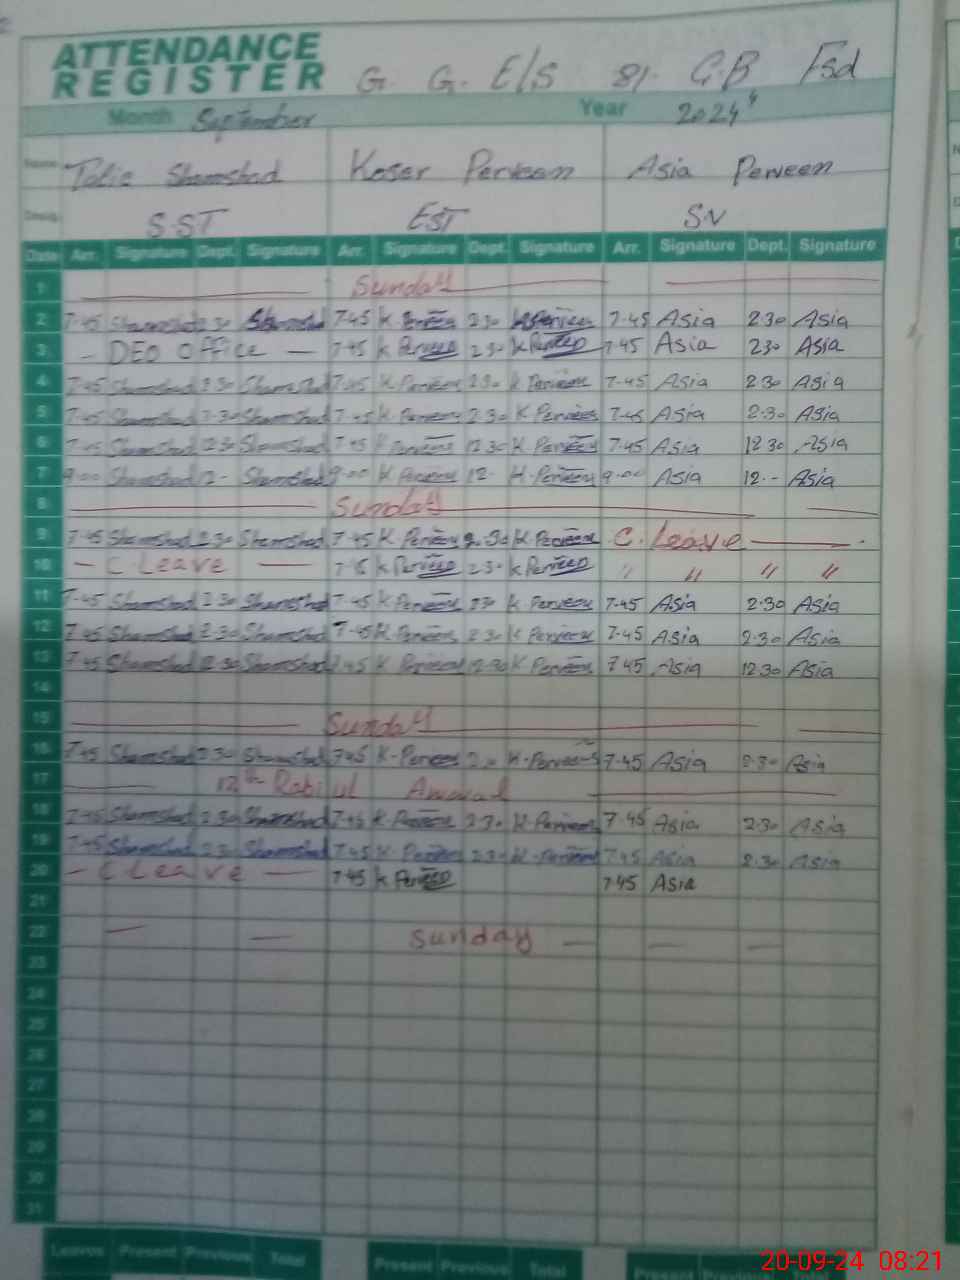 ATTENDANCE
REGISTER G. G. E/S 81. G.B Fsd
Month September Year 2024
Name Shamshad Koser Perveen Asia Perveen
Desig. S.ST EST SV
Date Arr. Signature Dept. Signature Arr. Signature Dept. Signature Arr. Signature Dept. Signature
1 Sunday
2 7-45 Shamshad 2 30 Shamshad 7-45 K Perveen 2 30 K Perveen 7-45 Asia 2.30 Asia
3 - DEO Office - 7-45 K Perveen 2 30 K Perveen 7-45 Asia 230 Asia
4 7-45 Shamshad 2 30 Shamshad 7-45 K Perveen 2.30 K Perveen 7-45 Asia 2 30 Asia
5 7-45 Shamshad 2-30 Shamshad 7-45 K Perveen 2 30 K Perveen 7-45 Asia 2.30 Asia
6 7-45 Shamshad 12 30 Shamshad 7-45 K Perveen 12.30 K Perveen 7-45 Asia 12 30 Asia
7 9-00 Shamshad 12- Shamshad 9-00 K Perveen 12- K-Perveen 9-00 Asia 12-- Asia
8 Sunday
9 7-45 Shamshad 2-30 Shamshad 7-45 K-Perveen 2-30 K-Perveen C. Leave
10 - C Leave - 7-45 K Perveen 2.30 K Perveen " " " "
11 7-45 Shamshad 2 30 Shamshad 7-45 K Perveen 2 30 K-Perveen 7-45 Asia 2.30 Asia
12 7-45 Shamshad 2-30 Shamshad 7-45 K-Perveen 2 30 K-Perveen 7-45 Asia 2.30 Asia
13 7-45 Shamshad 12-30 Shamshad 7-45 K Perveen 12-30 K Perveen 7 45 Asia 12.30 Asia
14
15 Sunday
16 7-45 Shamshad 2-30 Shamshad 7-45 K-Perveen 2.30 K-Perveen 7-45 Asia 2-30 Asia
17 12th Rabi ul Awwal
18 7-45 Shamshad 2 30 Shamshad 7-45 K-Perveen 2-30 K-Perveen 7-45 Asia 2-30 Asia
19 7-45 Shamshad 2 30 Shamshad 7-45 K-Perveen 2 30 K-Perveen 7-45 Asia 2-30 Asia
20 - C Leave - 7-45 K Perveen 7-45 Asia
21
22 - - Sunday - - -
23
24
25
26
27
28
29
30
31
Leaves Present Previous Total Present Previous Total Present Previous
20-09-24 08:21